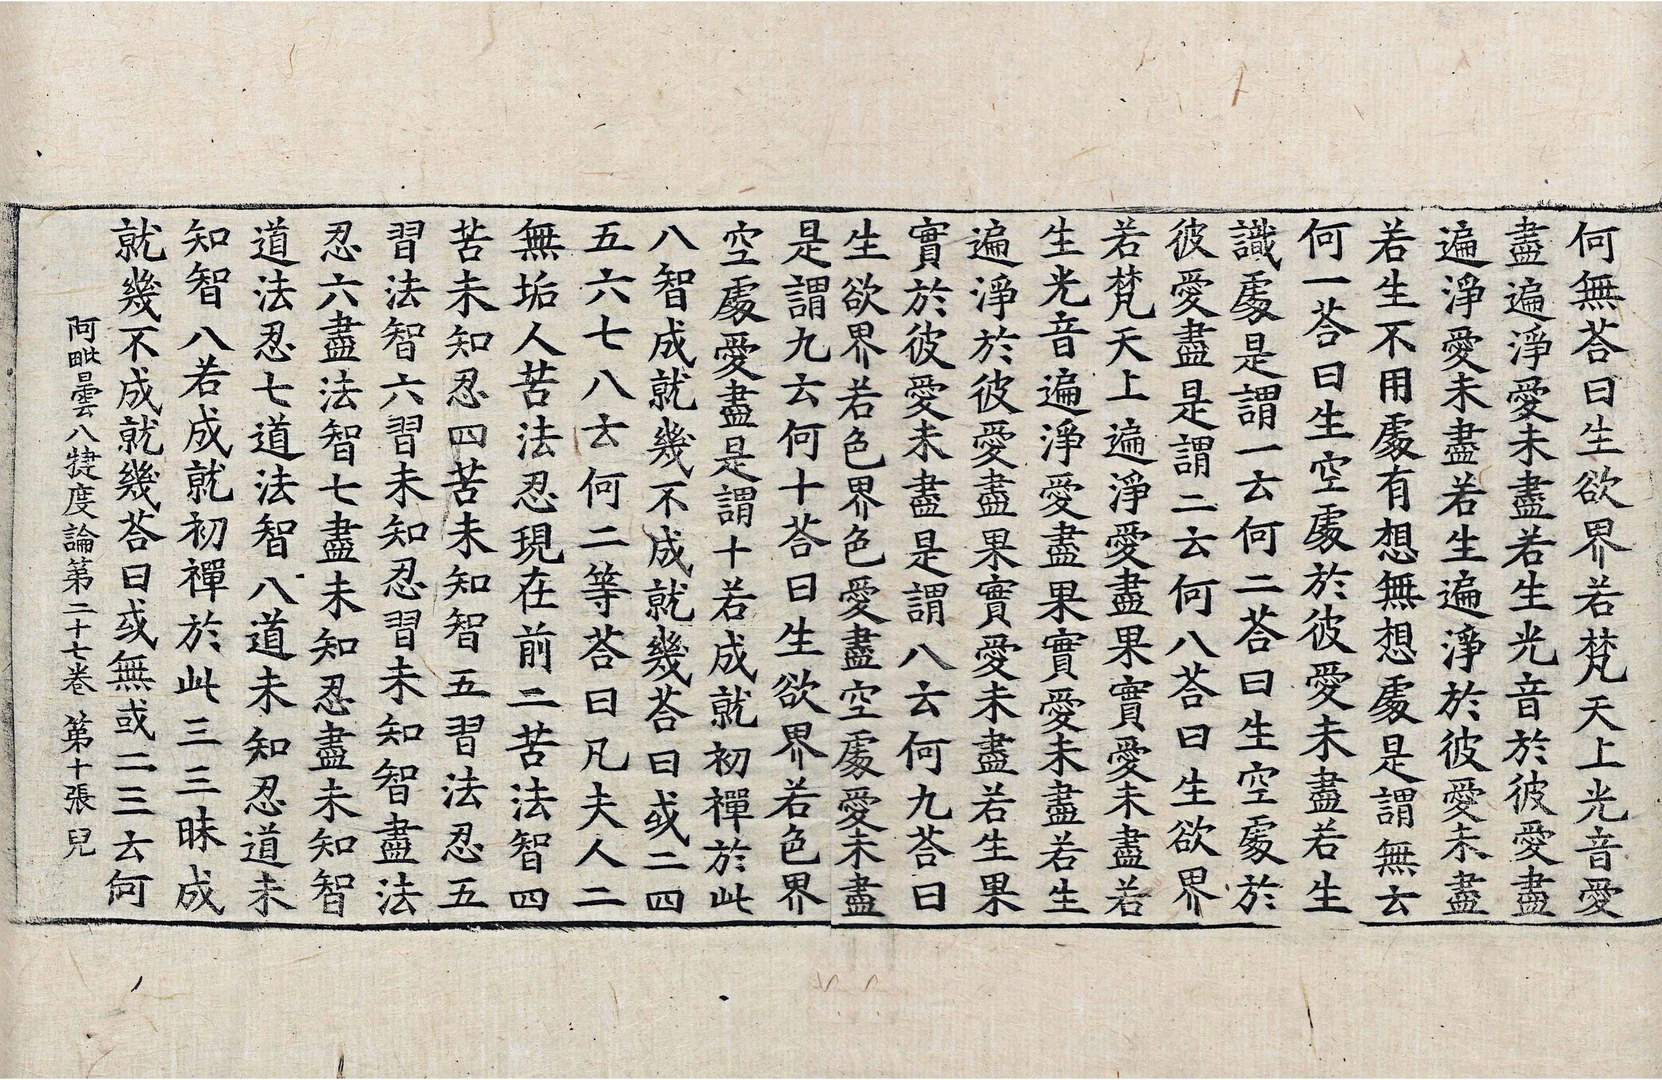 何無荅曰生欲界若梵天上光音愛
盡遍淨愛未盡若生光音於彼愛盡
遍淨愛未盡若生遍淨於彼愛未盡
若生不用處有想無想處是謂無云
何一荅曰生空處於彼愛未盡若生
識處是謂一云何二荅曰生空處於
彼愛盡是謂二云何八荅曰生欲界
若梵天上遍淨愛盡果實愛未盡若
生光音遍淨愛盡果實愛未盡若生
遍淨於彼愛盡果實愛未盡若生果
實於彼愛未盡是謂八云何九荅曰
生欲界若色界色愛盡空處愛未盡
是謂九云何十荅曰生欲界若色界
空處愛盡是謂十若成就初禪於此
八智成就幾不成就幾荅曰或二四
五六七八云何二等荅曰凡夫人二
無垢人苦法忍現在前二苦法智四
苦未知忍四苦未知智五習法忍五
習法智六習未知忍習未知智盡法
忍六盡法智七盡未知忍盡未知智
道法忍七道法智八道未知忍道未
知智八若成就初禪於此三三昧成
就幾不成就幾荅曰或無或二三云何
阿毗曇八犍度論第二十七卷 第十張 兒